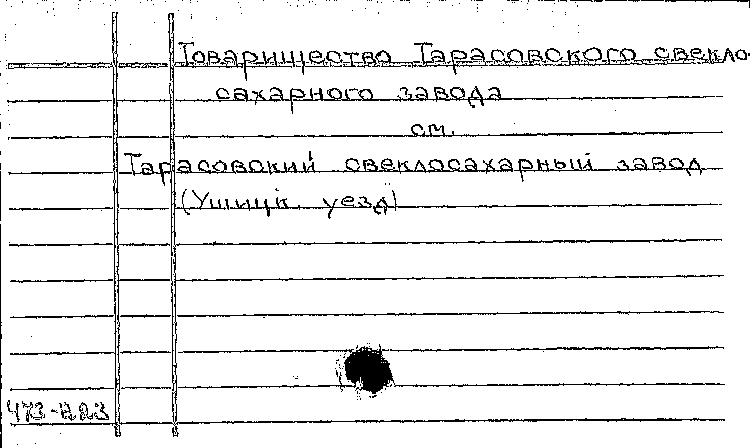 Товарищество Тарасовского свекло-
сахарного завода
см.
Тарасовский свеклосахарный завод
(Ушицк. уезд)